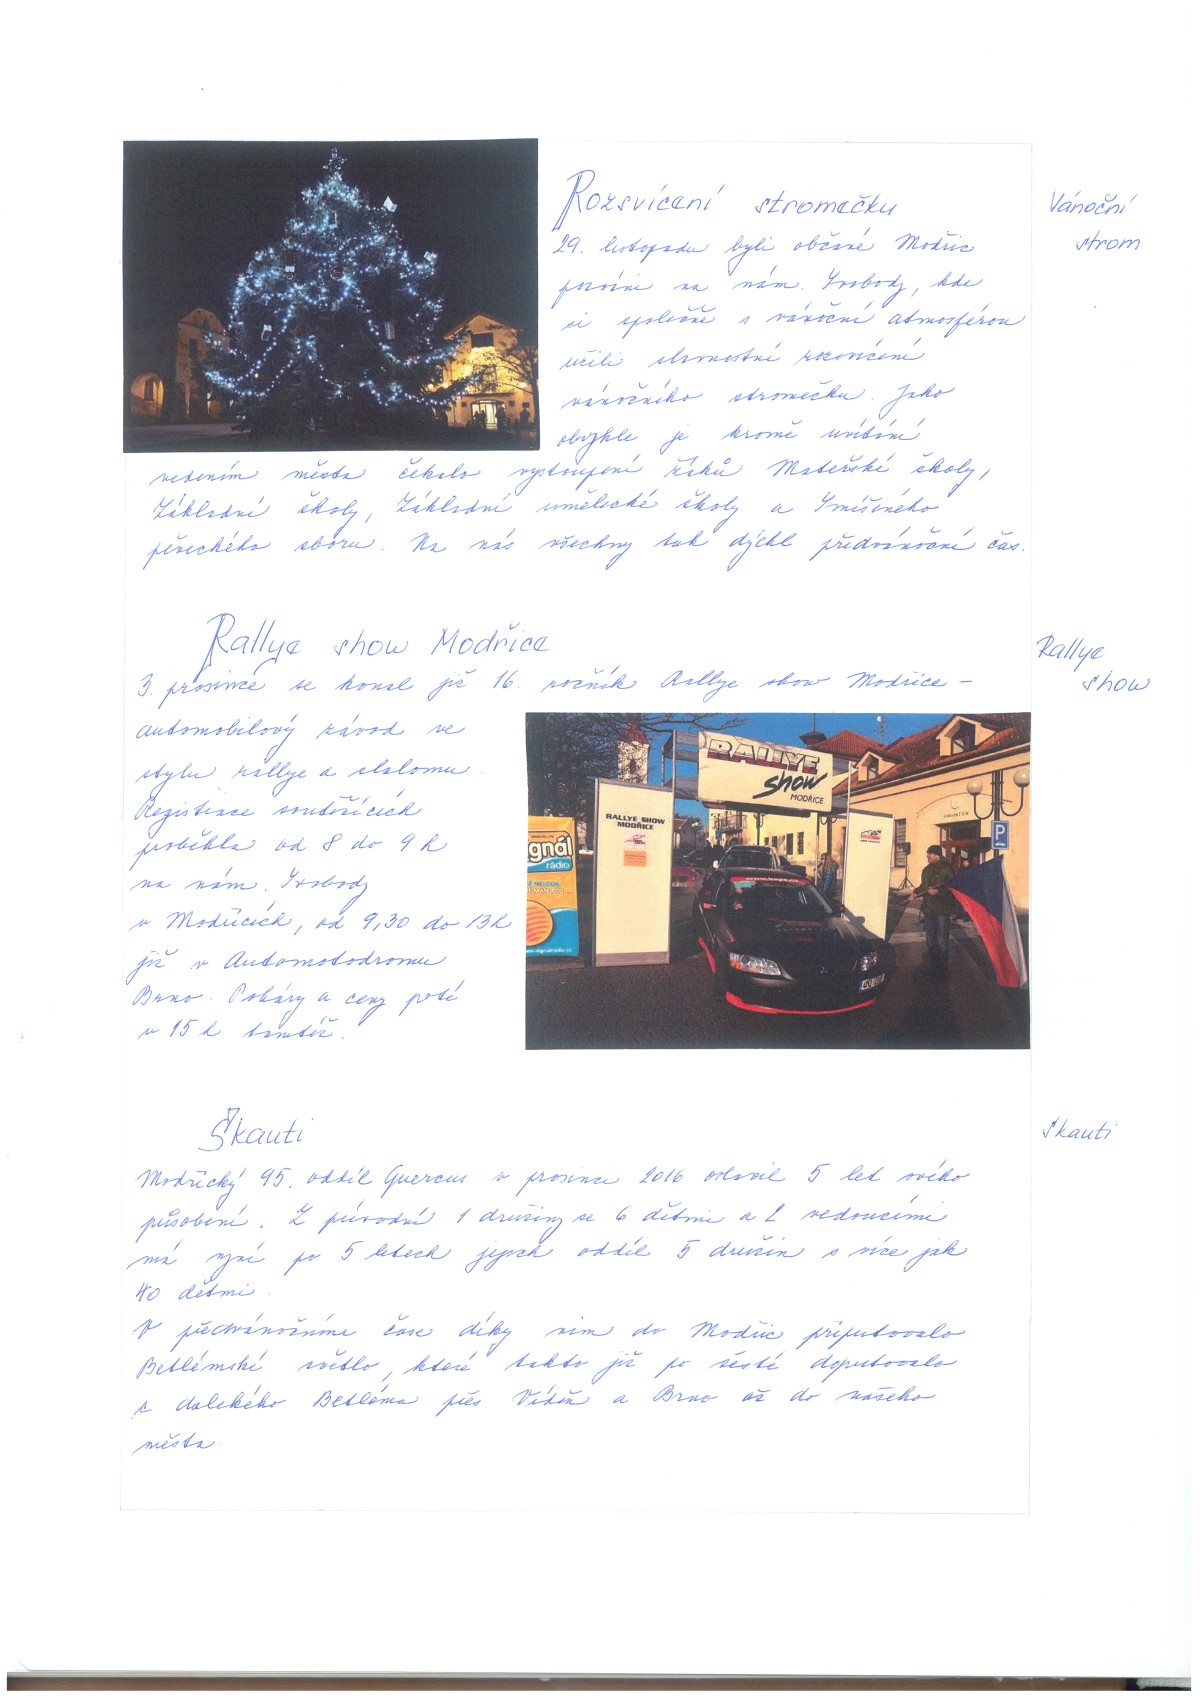 Rozsvícení stromečku
Vánoční
strom
29. listopadu byli občané Modřic
pozváni na nám. Svobody, kde
si společně s vánoční atmosférou
užili slavnostní rozsvícení
vánočního stromečku. Jako
obvykle je kromě uvítání
vedením města čekalo vystoupení žáků Mateřské školy,
Základní školy, Základní umělecké školy a Smíšeného
pěveckého sboru. Na nás všechny tak dýchl předvánoční čas.
Rallye show Modřice
Rallye
show
3. prosince se konal již 16. ročník Rallye show Modřice –
automobilový závod ve
stylu rallye a slalomu.
Registrace soutěžících
proběhla od 8 do 9 h
na nám. Svobody
v Modřicích, od 9,30 do 13h
již v Automotodromu
Brno. Poháry a ceny poté
v 15 h tamtéž.
RALLYE
show
MODŘICE
RALLYE SHOW
MODŘICE
gnál
rádio
P
Skauti
Skauti
Modřický 95. oddíl Quercus v prosinci 2016 oslavil 5 let svého
působení. Z původní 1 družiny se 6 dětmi a 2 vedoucími
má nyní po 5 letech jejich oddíl 5 družin s více jak
40 dětmi.
V předvánočním čase díky nim do Modřic připutovalo
Betlémské světlo, které takto již po šesté doputovalo
z dalekého Betléma přes Vídeň a Brno až do našeho
města.